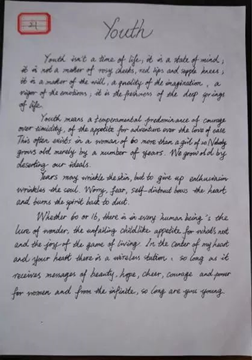 21
Youth
Youth isn't a time of life; it is a state of mind;
it is not a matter of rosy cheeks, red lips and supple knees;
it is a matter of the will, a quality of the imagination, a
vigor of the emotions; it is the freshness of the deep springs
of life.
Youth means a temperamental predominance of courage
over timidity, of the appetite for adventure over the love of ease.
This often exists in a woman of 60 more than a girl of 20. Nobody
grows old merely by a number of years. We grow old by
deserting our ideals.
Years may wrinkle the skin, but to give up enthusiasm
wrinkles the soul. Worry, fear, self-distrust bows the heart
and turns the spirit back to dust.
Whether 60 or 16, there is in every human being's the
lure of wonder, the unfailing childlike appetite for what's next
and the joy of the game of living. In the center of my heart
and your heart there is a wireless station; so long as it
receives messages of beauty, hope, cheer, courage and power
for women and from the infinite, so long are you young.